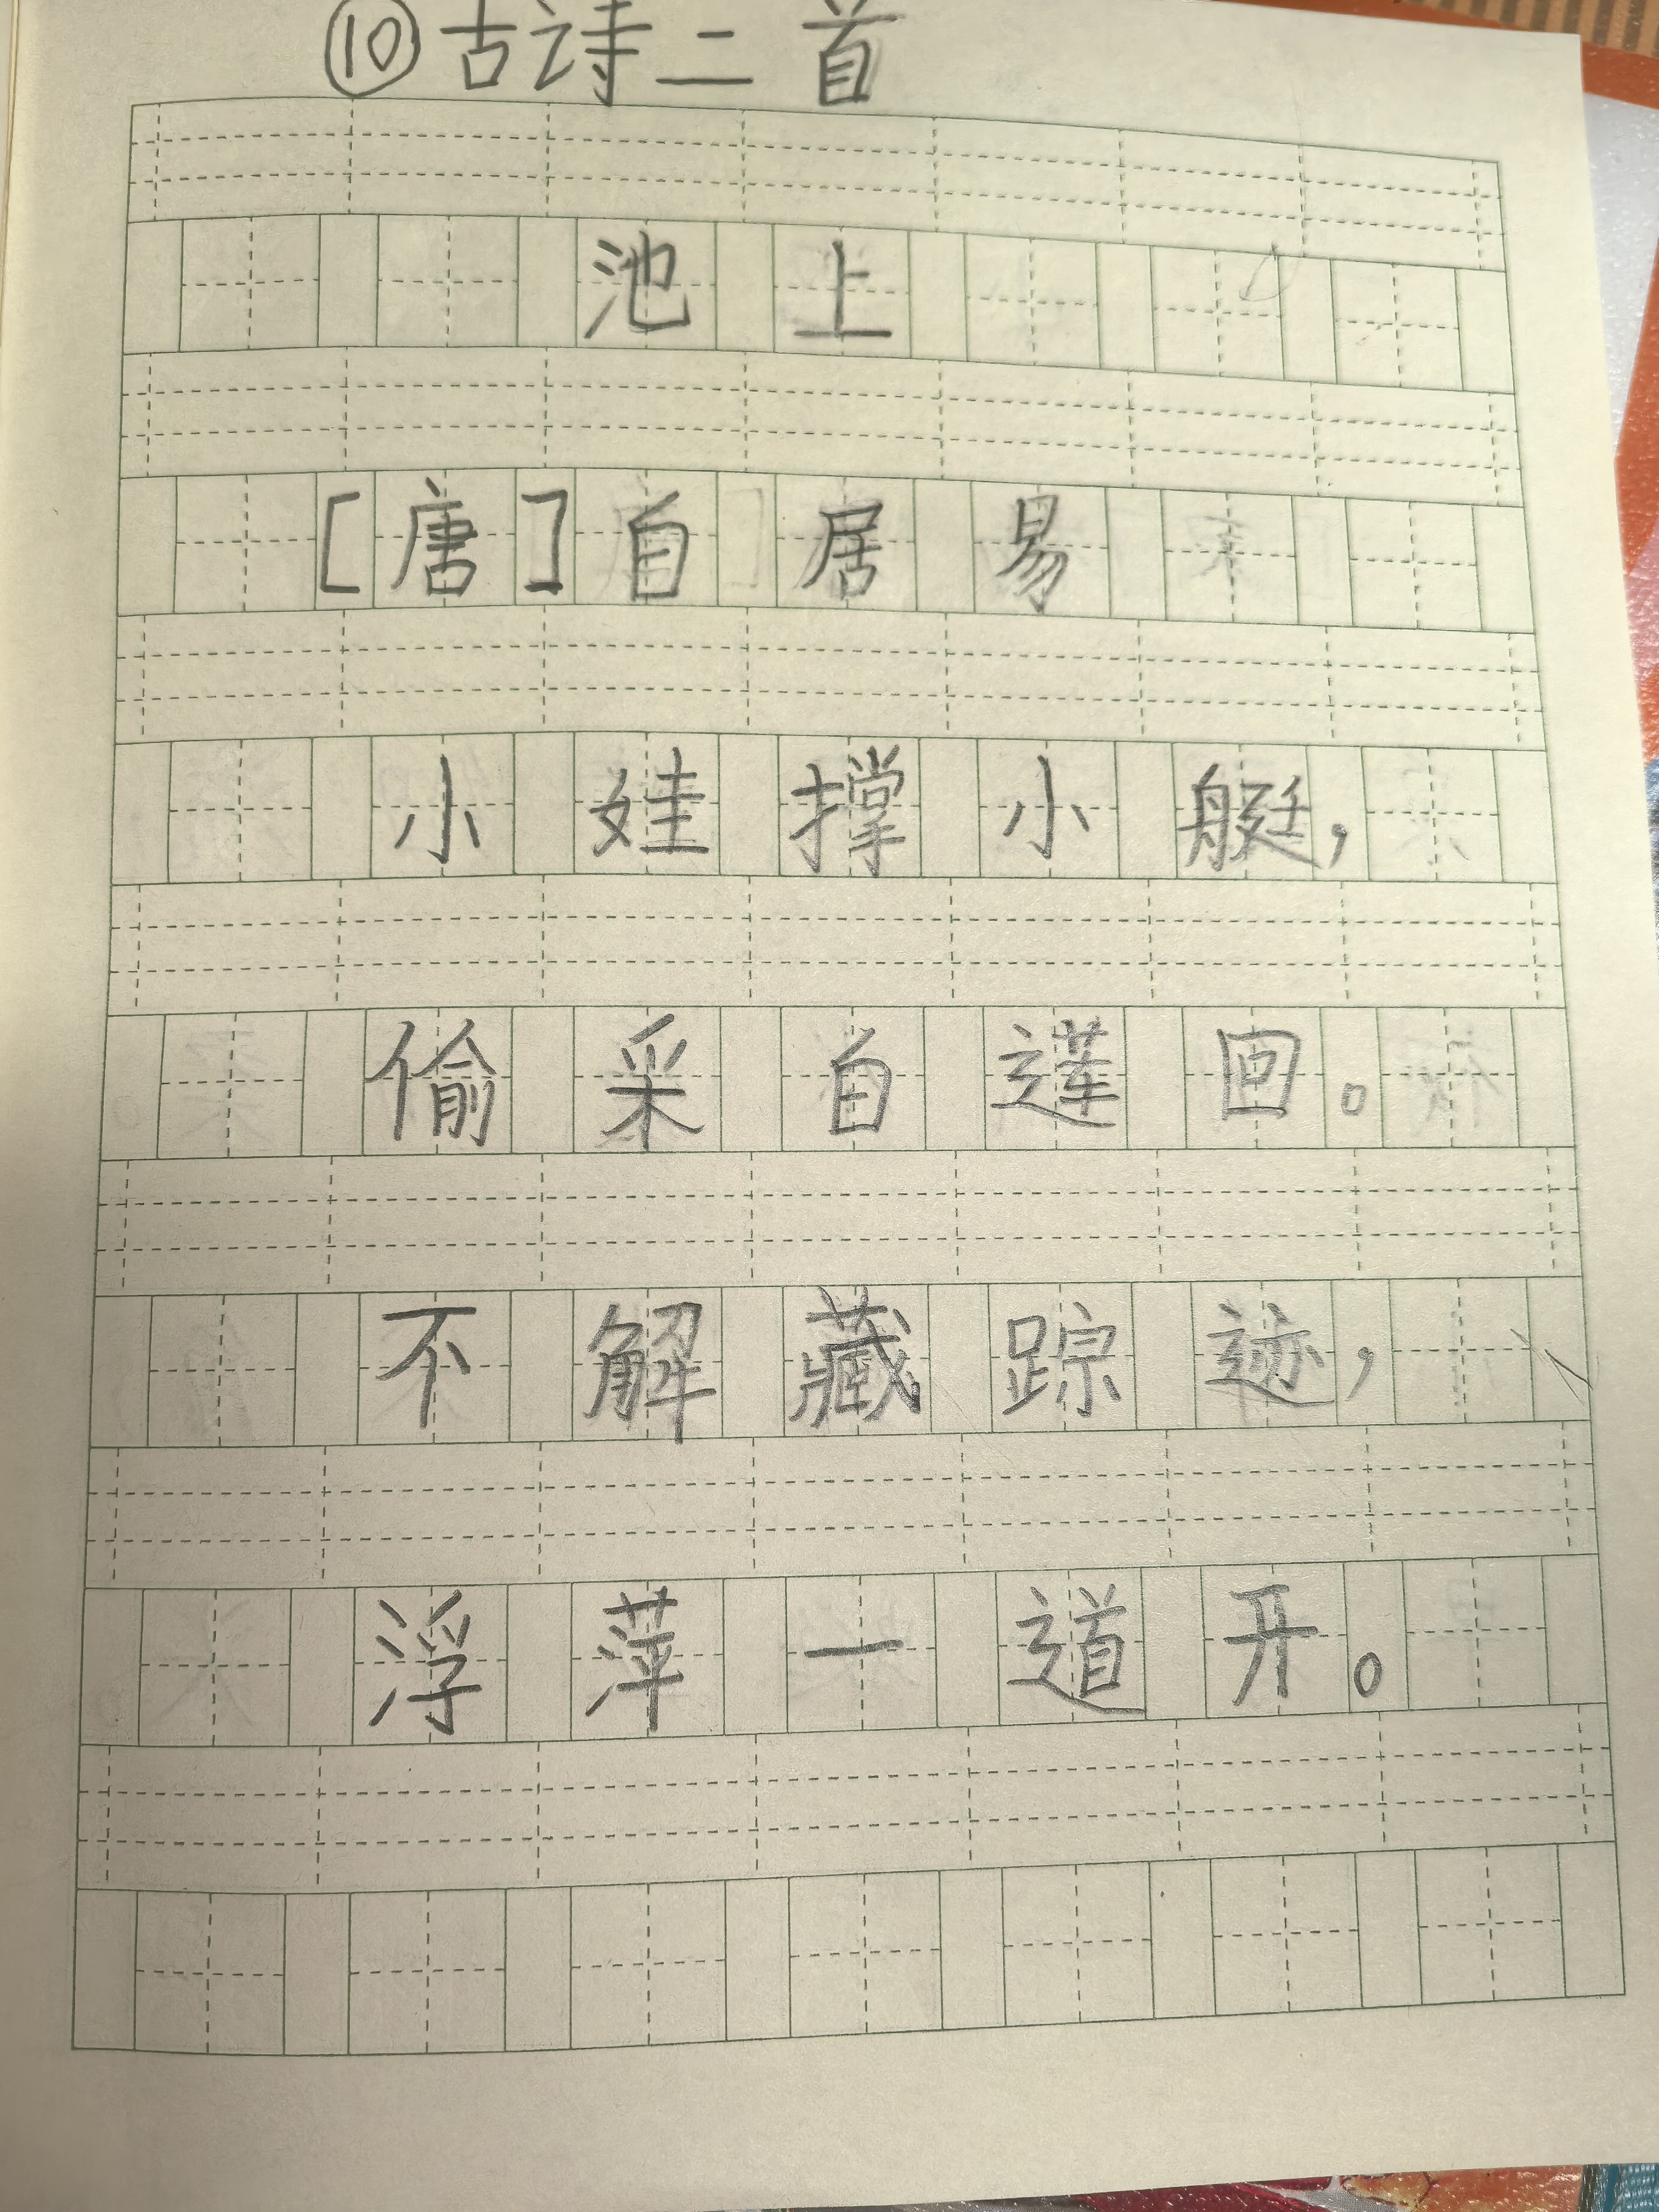 ⑩古诗二首
池上
[唐]自居易
小娃撑小艇，
偷采自莲回。
不解藏踪迹，
浮萍一道开。